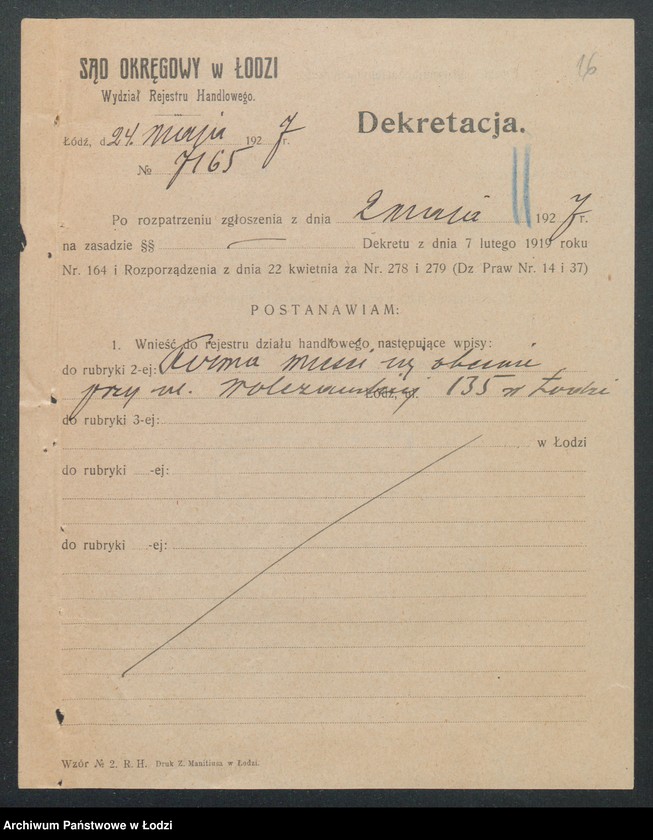 16
SĄD OKRĘGOWY w ŁODZI
Wydział Rejestru Handlowego.
Łódź, d. 24. maja 1927 r.
Dekretacja.
№ 7165
Po rozpatrzeniu zgłoszenia z dnia 2 maja 1927 r.
na zasadzie §§ — Dekretu z dnia 7 lutego 1919 roku
Nr. 164 i Rozporządzenia z dnia 22 kwietnia za Nr. 278 i 279 (Dz Praw Nr. 14 i 37)
POSTANAWIAM:
1. Wnieść do rejestru działu handlowego następujące wpisy:
do rubryki 2-ej: Firma mieści się obecnie
przy ul. Wolczańskiej 135 w Łodzi
Łódź, ul.
do rubryki 3-ej:
w Łodzi
do rubryki -ej:
do rubryki -ej:
Wzór № 2. R. H. Druk Z. Manitius w Łodzi.
Archiwum Państwowe w Łodzi